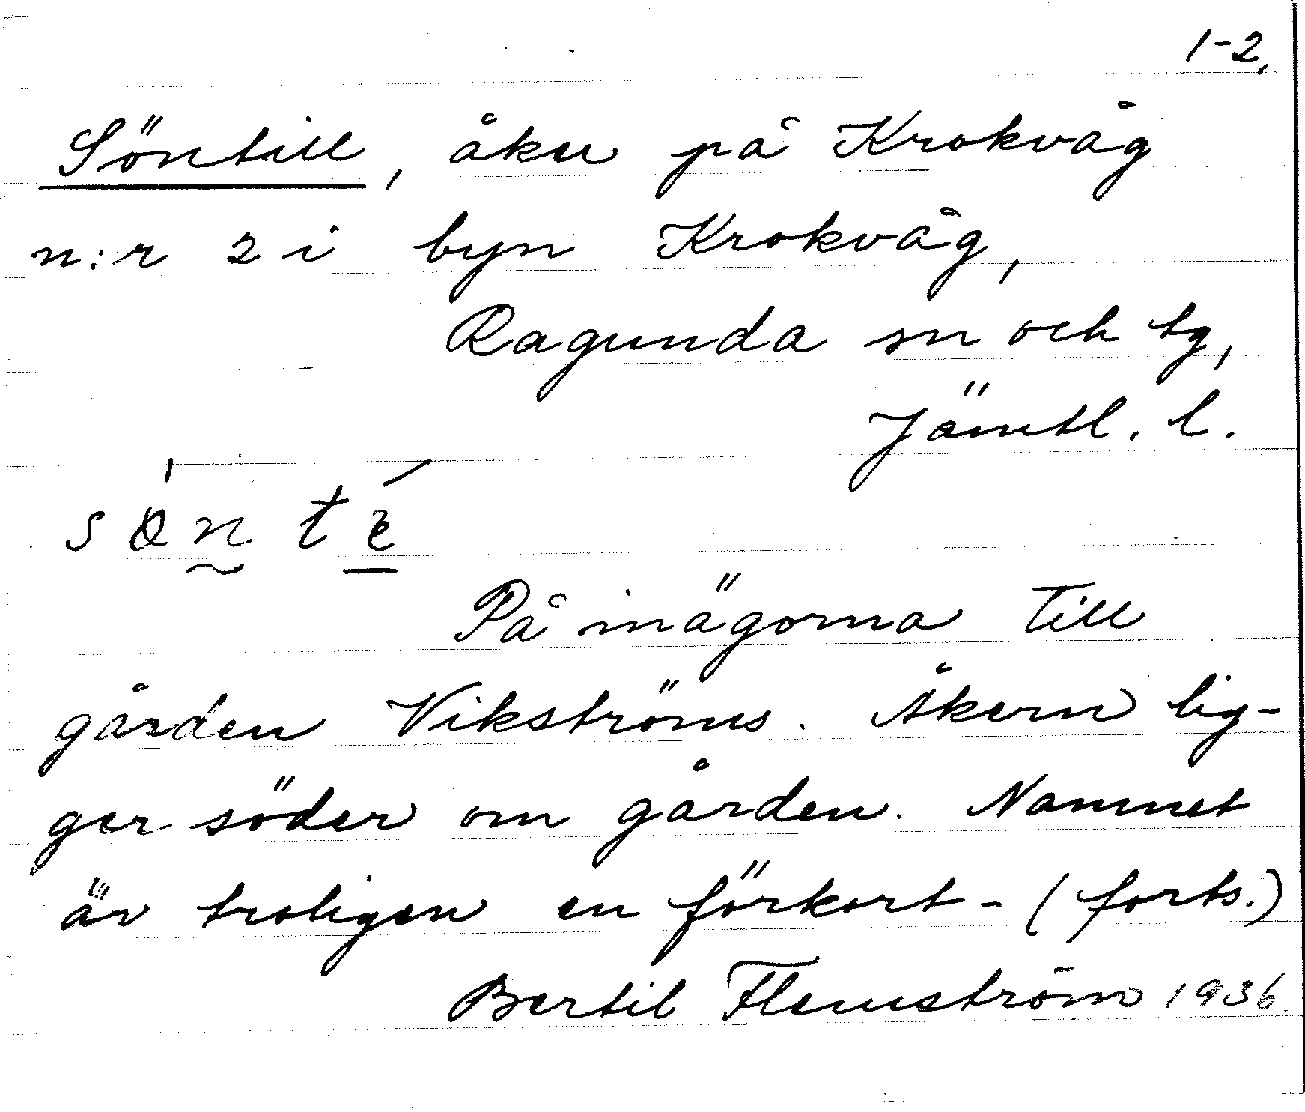 1-2.
Söntill, åker på Krokvåg
n:r 2 i byn Krokvåg,
Ragunda sn och tg,
Jämtl. l.
På inägorna till
gården Vikströms. Åkern lig-
ger söder om gården. Namnet
är troligen en förkort- (forts.)
Bertil Flemström 1936.